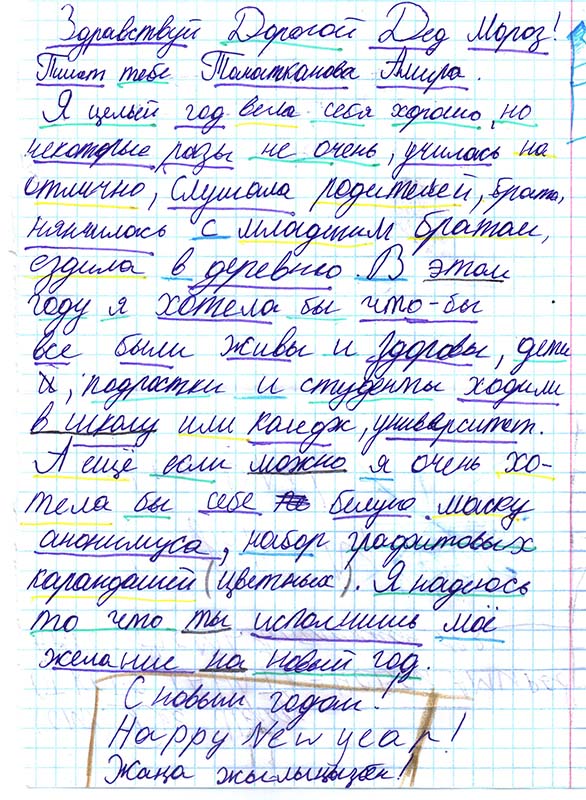 Здравствуй Дорогой Дед Мороз!
Пишет тебе Токатканова Амира.
Я целый год вела себя хорошо, но
некоторые разы не очень, училась на
отлично, слушала родителей, брата,
нянчилась с младшим братом,
ездила в деревню. В этом
году я хотела бы что-бы
все были живы и здоровы, дети
и, подростки и студенты ходили
в школу или каледж, университет.
А ещё если можно я очень хо-
тела бы себе белую маску
анонимуса, набор графитовых
карандашей (цветных). Я надеюсь
то что ты исполнишь моё
желание на новый год.
С новым годом!
Happy New year!
Жаңа жылыңызбен!